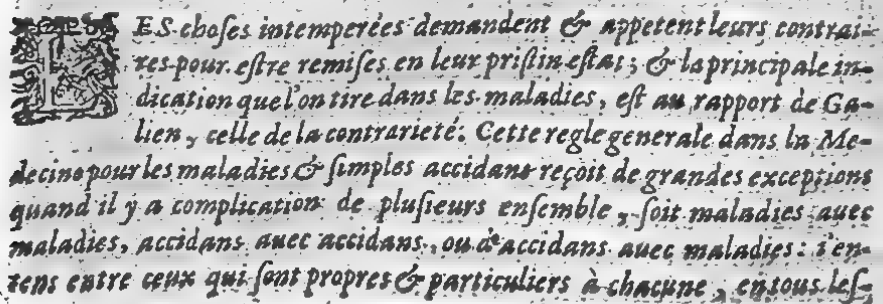 LES choſes intemperées demandent & appetent leurs contrai-
res pour eſtre remiſes en leur priſtin eſtat ; & la principale in-
dication que l'on tire dans les maladies, eſt au rapport de Ga-
lien, celle de la contrarieté. Cette regle generale dans la Me-
decine pour les maladies & ſimples accidans reçoit de grandes exceptions
quand il y a complication de pluſieurs enſemble, ſoit maladies auec
maladies, accidans auec accidans, ou d'accidans auec maladies : i'en-
tens entre ceux qui ſont propres & particuliers à chacune, en tous leſ-